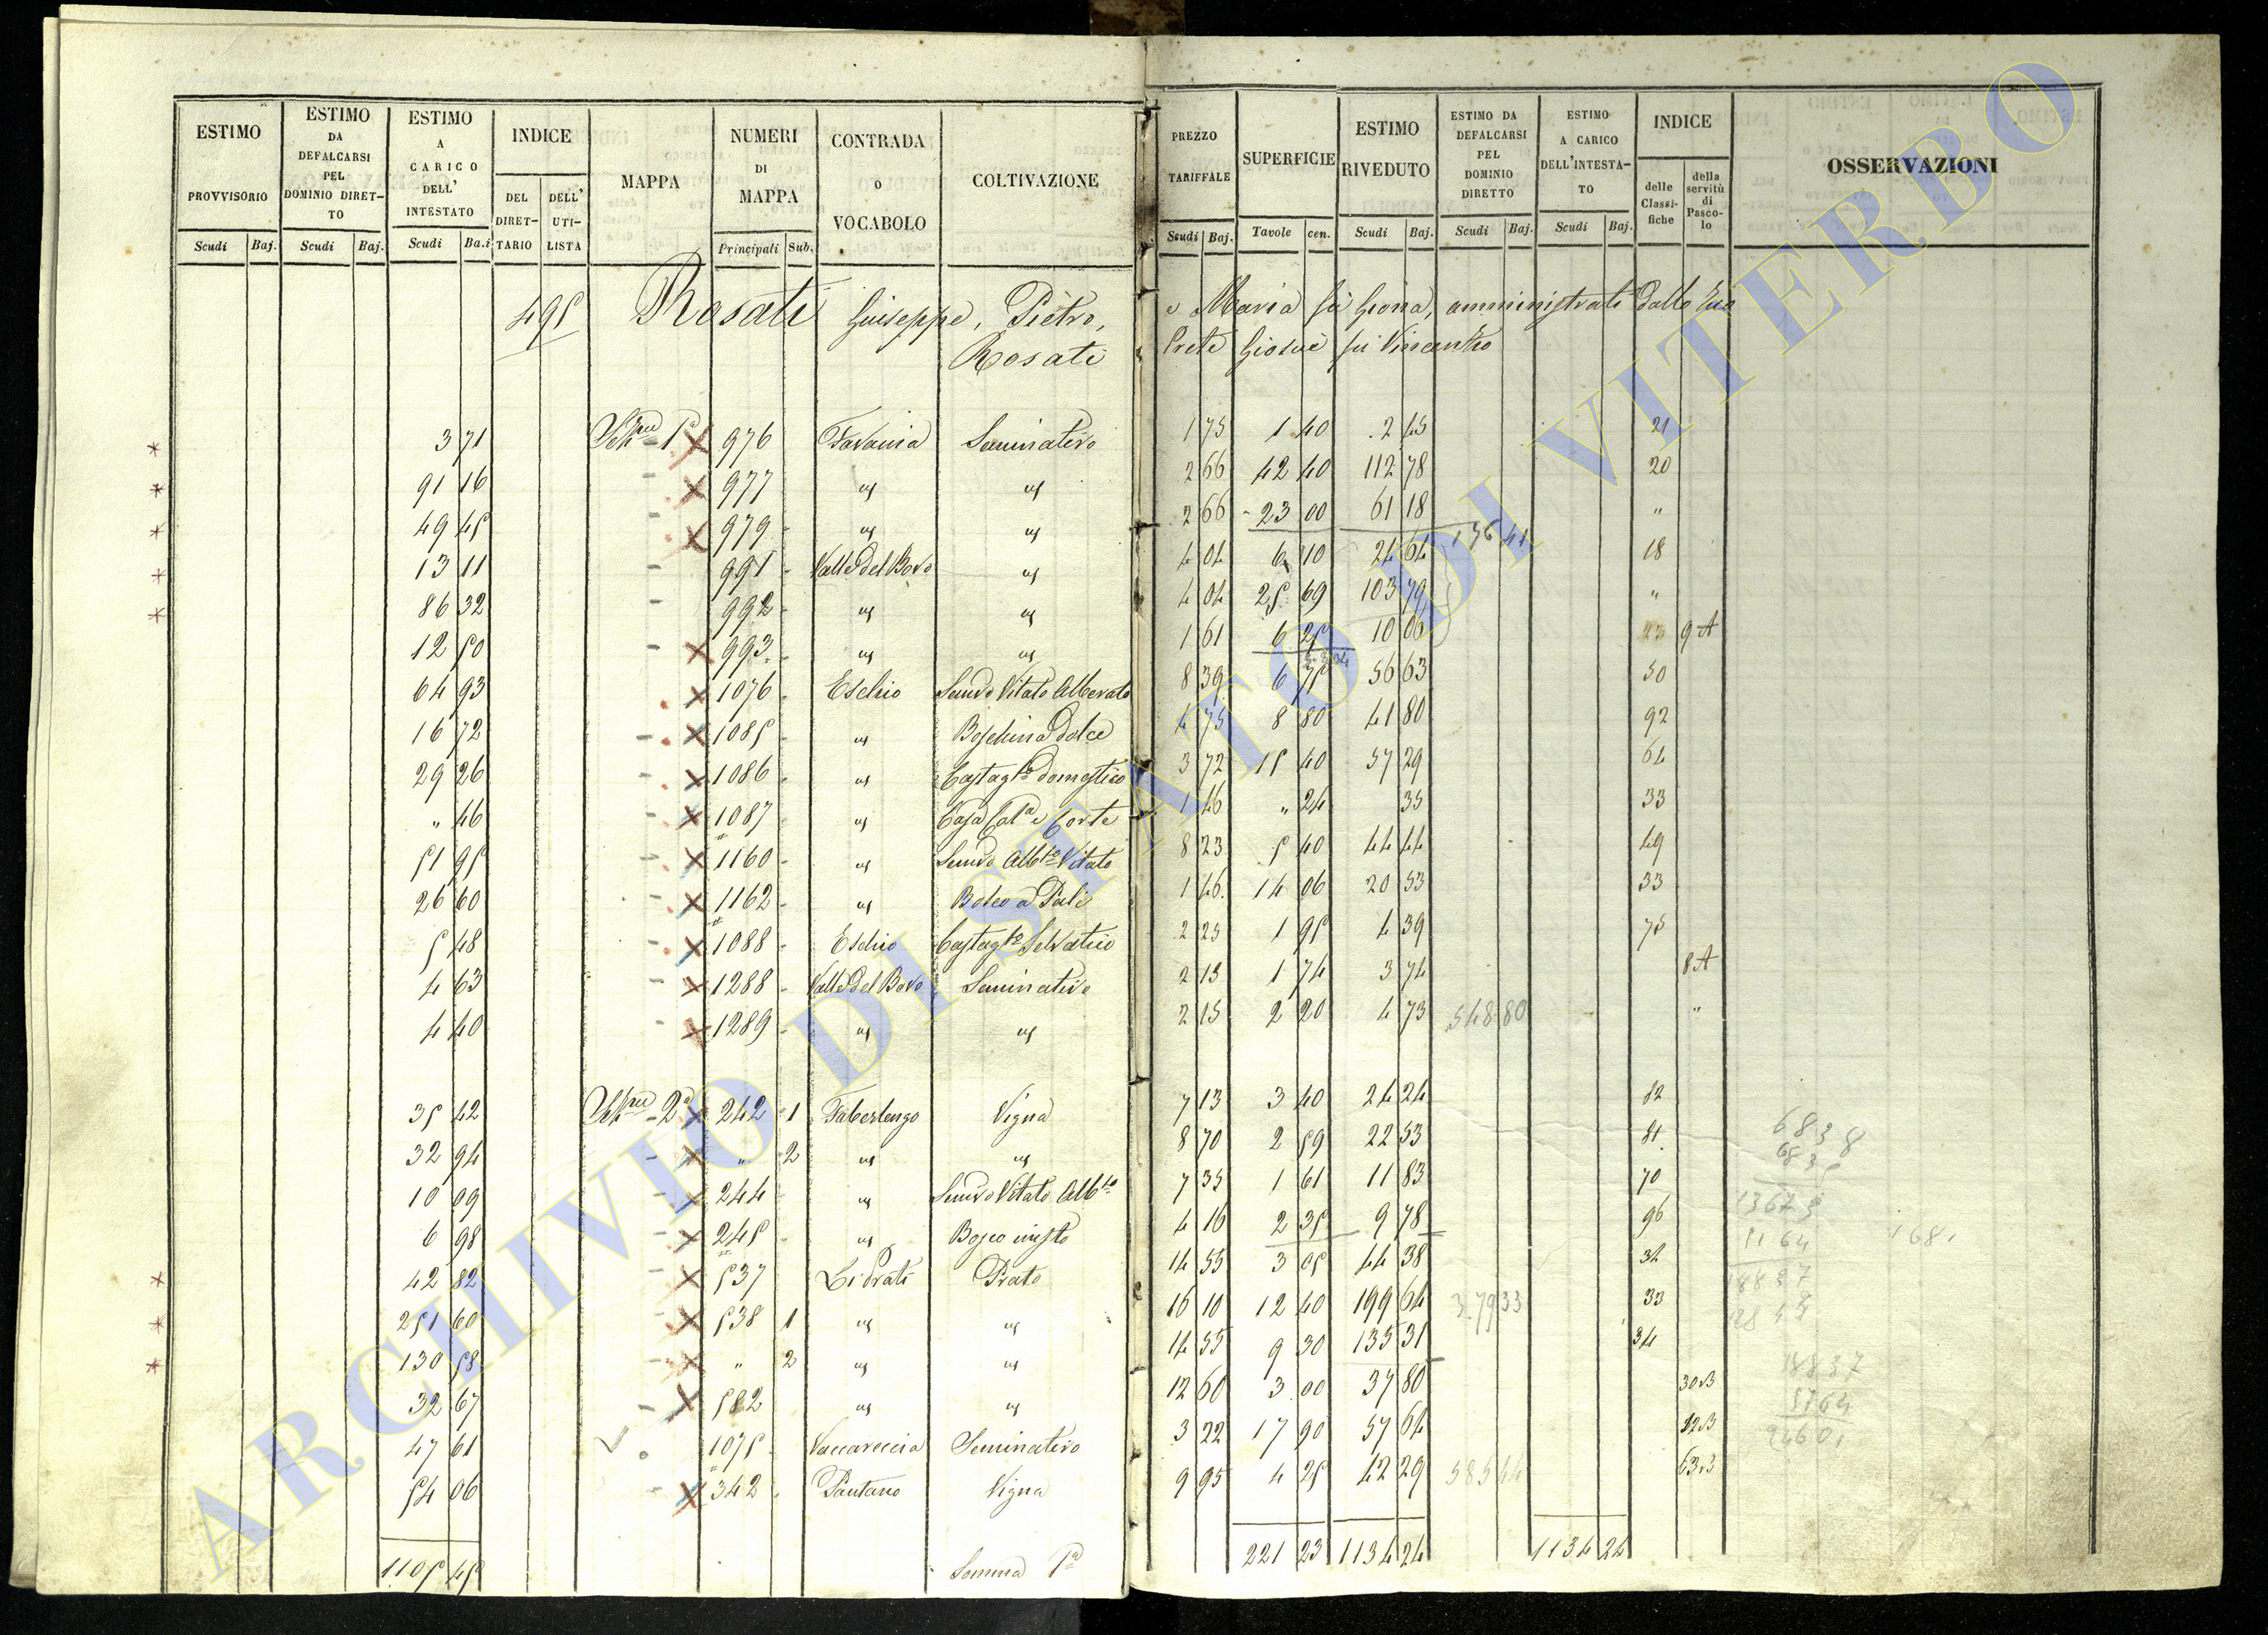 ESTIMO PROVVISORIO Scudi Baj.
ESTIMO DA DEFALCARSI PEL DOMINIO DIRET-TO Scudi Baj.
ESTIMO A CARICO DELL' INTESTATO Scudi Ba.i
INDICE DEL DIRET-TARIO DELL' UTI-LISTA
MAPPA
NUMERI DI MAPPA Principali Sub.
CONTRADA O VOCABOLO
COLTIVAZIONE
PREZZO TARIFFALE Scudi Baj.
SUPERFICIE Tavole cen.
ESTIMO RIVEDUTO Scudi Baj.
ESTIMO DA DEFALCARSI PEL DOMINIO DIRETTO Scudi Baj.
ESTIMO A CARICO DELL'INTESTA-TO Scudi Baj.
INDICE delle Classi-fiche della servitù di Pasco-lo
OSSERVAZIONI
495 Rosati Giuseppe, Pietro, e Maria fu Giona, amministrati dallo Zio
Rosati Prete Giosuè fu Vincenzo
3 71 976 Favania Seminativo 1 75 1 40 2 45 21
91 16 977 " " 2 66 42 40 112 78 20
49 45 979 " " 2 66 23 00 61 18 "
136 41
13 11 991 Valle del Bovo " 4 04 6 10 24 64 18
86 32 992 " " 4 04 25 69 103 79 "
12 50 993 " " 1 61 6 25 10 06 23 9 A
64 93 1076 Eschio Semvo Vitato Alberato 8 39 6 75 56 63 50
16 72 1085 " Boschina Dolce 4 75 8 80 41 80 92
29 26 1086 " Castagto domestico 3 72 15 40 57 29 64
" 46 1087 " Casa Cola e Corte 1 46 " 24 35 33
51 95 1160 " Semvo Albto Vitato 8 23 5 40 44 44 49
26 60 1162 " Bosco a Pali 1 46 14 06 20 53 33
5 48 1088 Eschio Castagto Selvatico 2 25 1 95 4 39 75
4 63 1288 Valle del Bovo Seminativo 2 15 1 74 3 74 8 A
4 40 1289 " " 2 15 2 20 4 73 548 80 "
35 42 2a 242 1 Faberlengo Vigna 7 13 3 40 24 24 82
32 94 " 2 " " 8 70 2 59 22 53 81
10 09 244 " Semvo Vitato Albto 7 35 1 61 11 83 70
6 98 245 " Bosco misto 4 16 2 35 9 78 96
42 82 537 Li Prati Prato 14 55 3 05 44 38 34
251 60 538 1 " " 16 10 12 40 199 64 379 33 33
130 58 " 2 " " 14 55 9 30 135 31 34
32 67 582 " " 12 60 3 00 37 80 30 B
47 61 1075 Vaccareccia Seminativo 3 22 17 90 57 64 12 B
54 06 342 Pantano Vigna 9 95 4 25 42 29 585 44 63 B
1105 45 Somma Pa 221 23 1134 24 1134 24
ARCHIVIO DI STATO DI VITERBO